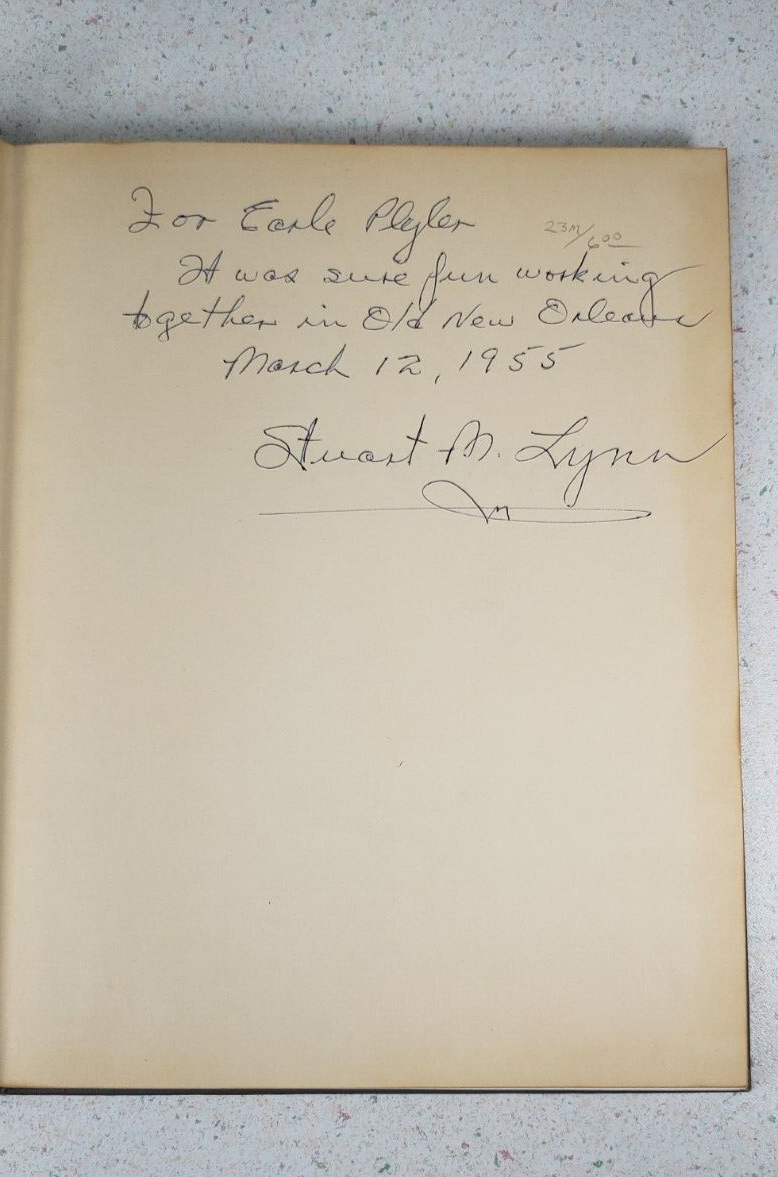 For Earle Plyler
23m/6.00
It was sure fun working
together in Old New Orleans
March 12, 1955
Stuart M. Lynn